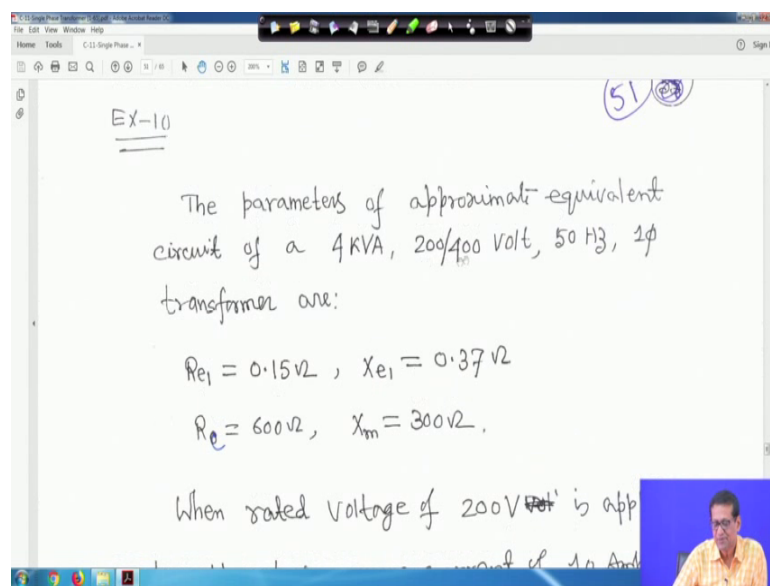 C-11-Single Phase Transformer (1-65).pdf - Adobe Acrobat Reader DC
File Edit View Window Help
Home Tools C-11-Single Phase ... × Sign
51 / 65 200%
51
EX-10
The parameters of approximate equivalent
circuit of a 4 KVA, 200/400 Volt, 50 Hz, 1φ
transformer are:
Re1 = 0.15Ω , Xe1 = 0.37Ω
Rc = 600Ω, Xm = 300Ω.
When rated voltage of 200V is app
of 10 Amp